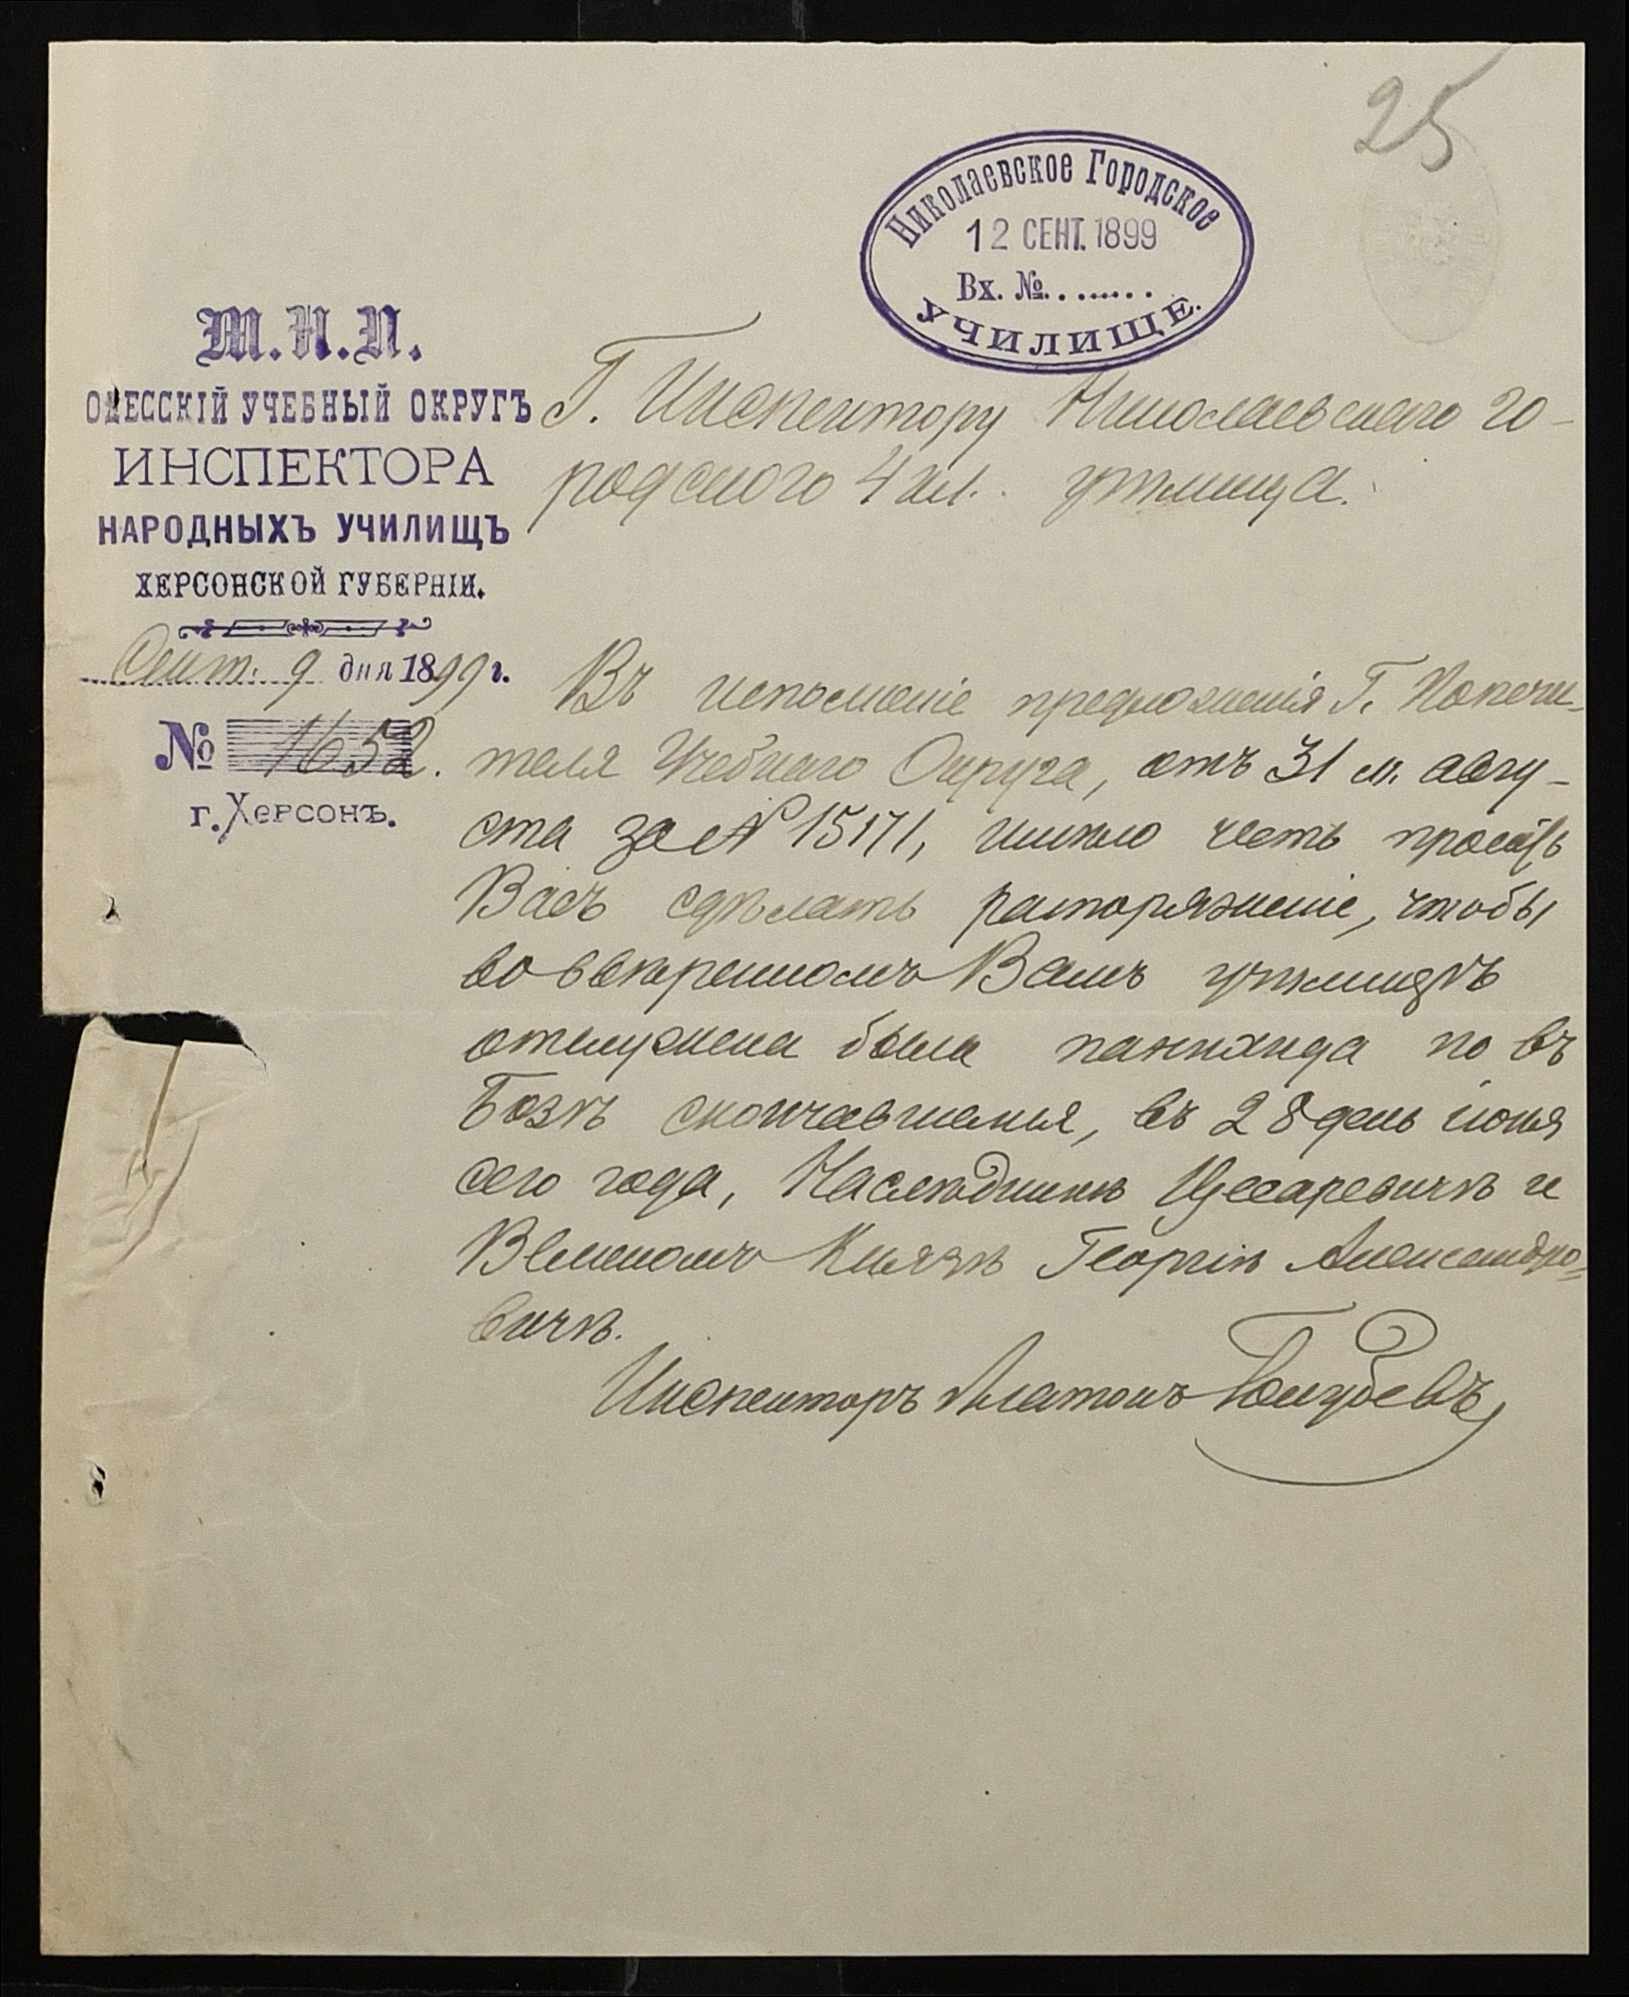 25
Николаевское Городское
12 СЕНТ. 1899
Вх. №.........
УЧИЛИЩЕ.
М.Н.П.
ОДЕССКІЙ УЧЕБНЫЙ ОКРУГЪ
ИНСПЕКТОРА
НАРОДНЫХЪ УЧИЛИЩЪ
ХЕРСОНСКОЙ ГУБЕРНІИ.
Сент. 9 дня 1899 г.
№ 1652.
г. Херсонъ.
Г. Инспектору Николаевскаго го-
родского 4 кл. училища.
Въ исполненіе предложенія Г. Попечи-
теля Учебнаго Округа, отъ 31 м. авгу-
ста за № 15171, имѣю честь просить
Васъ сдѣлать распоряженіе, чтобы
во ввѣренномъ Вамъ училищѣ
отслужена была панихида по въ
Бозѣ скончавшемся, въ 28 день іюня
сего года, Наслѣдникѣ Цесаревичѣ и
Великомъ Князѣ Георгіѣ Александро-
вичѣ.
Инспекторъ Платонъ